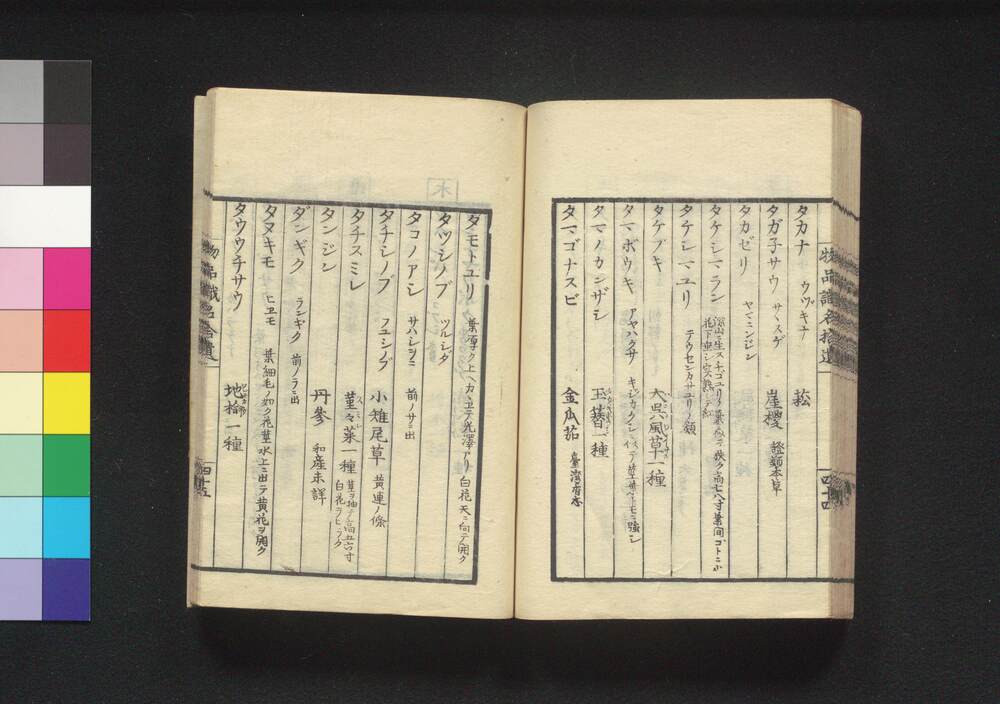 タカナ ウヅキナ 菘
タガ子サウ サヽスゲ 崖椶 證類本草
タカゼリ ヤマニンジン
タケシマラン 深山ニ生ス チゴユリノ葉ニ似テ狭ク高七八寸葉間ゴトニ小花下垂シ実熟シテ紅
タケシマユリ テウセンカサユリノ類
タケブキ 大呉風草一種
タマボウキ アヤハクサ キジカクシニ似テ茎葉トモニ強シ
タマノカンザシ 玉簪一種
タマゴナスビ 金瓜茄 臺湾府志
物品識名拾遺
四十四
タモトユリ 葉厚ク上ヘカヽエテ光澤アリ白花天ニ向テ開ク
タツシノブ ツルシダ
タコノアシ サハシヲニ 前ノサニ出
タチシノブ フユシノブ 小雉尾草 黄連ノ條
タチスミレ 菫々菜一種 茎ヲ抽テ高五六寸白花ヲヒラク
タンジン 丹参 和産未詳
ダンギク ランギク 前ノラニ出
タヌキモ ヒヱモ 葉細毛ノ如ク花茎水上ニ出テ黄花ヲ開ク
タウウチサウ 地楡一種
物品識名拾遺
四十五